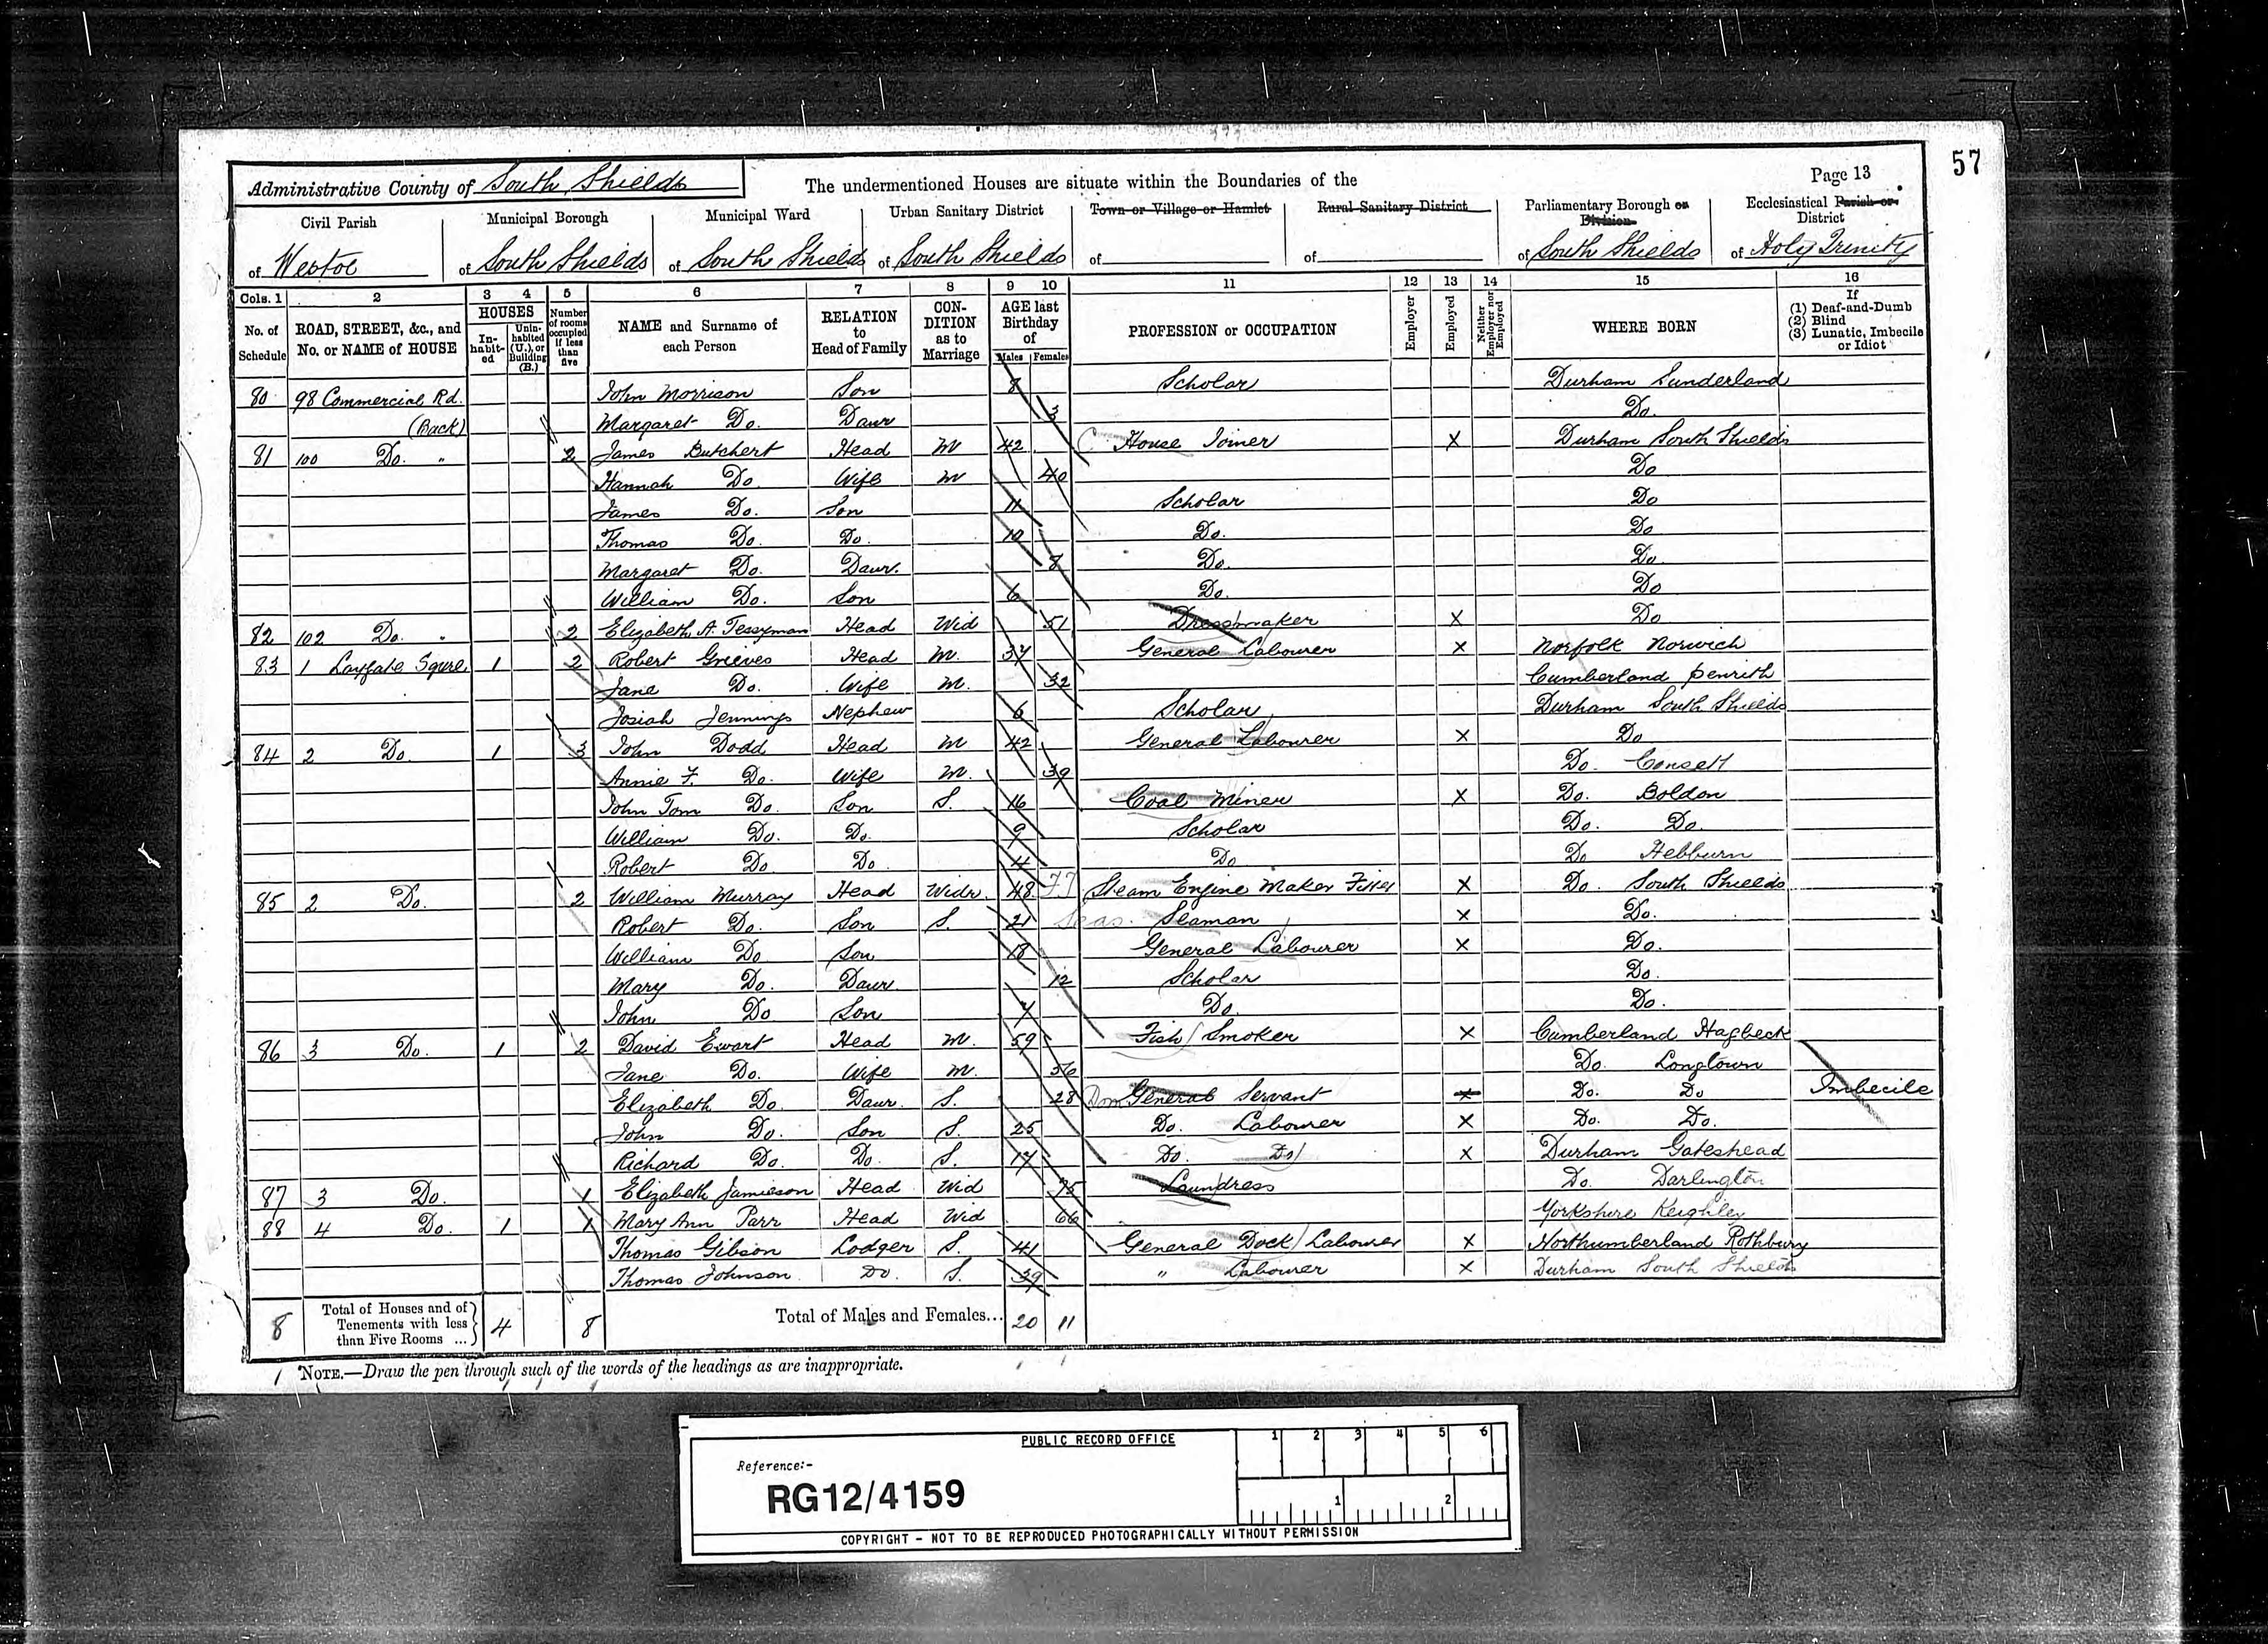 57
Administrative County of South Shields
The undermentioned Houses are situate within the Boundaries of the
Page 13
Civil Parish of Westoe
Municipal Borough of South Shields
Municipal Ward of South Shields
Urban Sanitary District of South Shields
Town or Village or Hamlet of
Rural Sanitary District of
Parliamentary Borough or Division of South Shields
Ecclesiastical Parish or District of Holy Trinity
Cols. 1 2 3 4 5 6 7 8 9 10 11 12 13 14 15 16
No. of Schedule
ROAD, STREET, &c., and No. or NAME of HOUSE
HOUSES
In-habit-ed
Unin-habited (U.), or Building (B.)
Number of rooms occupied if less than five
NAME and Surname of each Person
RELATION to Head of Family
CON-DITION as to Marriage
AGE last Birthday of
Males Females
PROFESSION or OCCUPATION
Employer
Employed
Neither Employer nor Employed
WHERE BORN
If (1) Deaf-and-Dumb (2) Blind (3) Lunatic, Imbecile or Idiot
80 98 Commercial Rd. John Morrison Son 8 Scholar Durham Sunderland
(Back) Margaret Do. Daur 3 Do.
81 100 Do. " 2 James Butchert Head M 42 House Joiner X Durham South Shields
Hannah Do. Wife M 40 Do
James Do. Son 11 Scholar Do
Thomas Do. Do. 10 Do. Do
Margaret Do. Daur. 8 Do. Do.
William Do. Son 6 Do. Do
82 102 Do. " 2 Elizabeth A. Tessyman Head Wid 51 Dressmaker X Do
83 1 Laygate Squre 1 2 Robert Grieves Head M. 37 General Labourer X Norfolk Norwich
Jane Do. Wife M. 32 Cumberland Penrith
Josiah Jennings Nephew 6 Scholar Durham South Shields
84 2 Do. 1 3 John Dodd Head M 42 General Labourer X Do
Annie F. Do. Wife M. 39 Do. Consett
John Tom Do. Son S. 16 Coal Miner X Do. Boldon
William Do. Do. 9 Scholar Do. Do.
Robert Do. Do 4 Do Do Hebburn
85 2 Do. 2 William Murray Head Widr. 48 Steam Engine Maker Fitter X Do. South Shields
Robert Do. Son S. 21 Seaman X Do.
William Do Son 18 General Labourer X Do.
Mary Do. Daur. 12 Scholar Do.
John Do Son 7 Do. Do.
86 3 Do. 1 2 David Ewart Head M. 59 Fish Smoker X Cumberland Hagbeck
Jane Do. Wife M. 56 Do. Longtown
Elizabeth Do. Daur. S. 28 Dom General Servant X Do. Do Imbecile
John Do. Son S. 25 Do. Labourer X Do. Do.
Richard Do. Do. S. 17 Do. Do X Durham Gateshead
87 3 Do. 1 Elizabeth Jamieson Head Wid 75 Laundress Do. Darlington
88 4 Do. 1 1 Mary Ann Parr Head Wid 66 Yorkshire Keighley
Thomas Gibson Lodger S. 41 General Dock Labourer X Northumberland Rothbury
Thomas Johnson Do. S. 39 " Labourer X Durham South Shields
8 Total of Houses and of Tenements with less than Five Rooms ... 4 8 Total of Males and Females... 20 11
NOTE.—Draw the pen through such of the words of the headings as are inappropriate.
PUBLIC RECORD OFFICE
Reference:-
RG12/4159
1 2 3 4 5 6
1 2
COPYRIGHT - NOT TO BE REPRODUCED PHOTOGRAPHICALLY WITHOUT PERMISSION